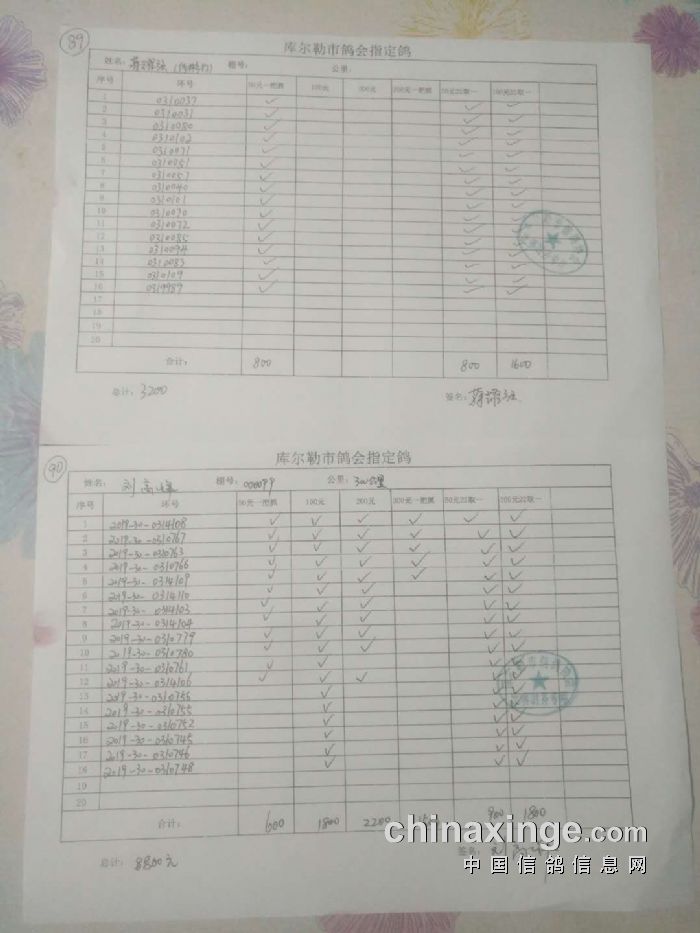 89
库尔勒市鸽会指定鸽
姓名: 棚号: 公里:
序号 环号 50元一把抓 100元 200元 50元22取一 100元22取一
1 0310037 ✓ ✓ ✓
2 0310031 ✓ ✓ ✓
3 0310080 ✓ ✓ ✓
4 0310102 ✓ ✓ ✓
5 0310071 ✓ ✓ ✓
6 0310051 ✓ ✓ ✓
7 0310057 ✓ ✓ ✓
8 0310040 ✓ ✓ ✓
9 0310101 ✓ ✓ ✓
10 0310070 ✓ ✓ ✓
11 0310072 ✓ ✓ ✓
12 0310085 ✓ ✓ ✓
13 0310094 ✓ ✓ ✓
14 0310083 ✓ ✓ ✓
15 0310109 ✓ ✓ ✓
16 0319987 ✓ ✓ ✓
17
18
19
20
合计: 800 800 1600
总计: 3200 签名:
90
库尔勒市鸽会指定鸽
姓名: 刘高峰 棚号: 000099 公里: 300公里
序号 环号 50元一把抓 100元 200元 50元22取一 100元22取一
1 2019-30-0314108 ✓ ✓ ✓ ✓ ✓ ✓
2 2019-30-0310767 ✓ ✓ ✓ ✓ ✓ ✓
3 2019-30-0310763 ✓ ✓ ✓ ✓ ✓ ✓
4 2019-30-0310766 ✓ ✓ ✓ ✓ ✓ ✓
5 2019-30-0314109 ✓ ✓ ✓ ✓ ✓ ✓
6 2019-30-0314110 ✓ ✓ ✓ ✓ ✓
7 2019-30-0314103 ✓ ✓ ✓ ✓ ✓
8 2019-30-0314104 ✓ ✓ ✓ ✓ ✓
9 2019-30-0310779 ✓ ✓ ✓ ✓ ✓
10 2019-30-0310780 ✓ ✓ ✓ ✓ ✓
11 2019-30-0310761 ✓ ✓ ✓ ✓
12 2019-30-0314106 ✓ ✓ ✓ ✓ ✓
13 2019-30-0310756 ✓ ✓ ✓
14 2019-30-0310755 ✓ ✓ ✓
15 2019-30-0310752 ✓ ✓ ✓
16 2019-30-0310745 ✓ ✓ ✓
17 2019-30-0310746 ✓ ✓ ✓
18 2019-30-0310748 ✓ ✓ ✓
19
20
合计: 600 1800 2200 900 1800
总计: 8800元 签名: 刘
chinaxinge.com
中国信鸽信息网